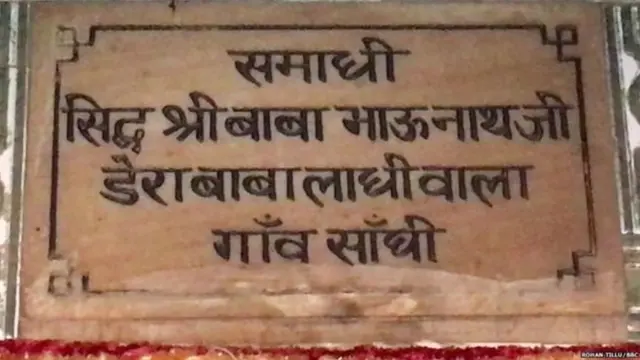 समाधी
सिद्ध श्री बाबा भाऊनाथ जी
डेरा बाबा लाधीवाला
गाँव साँघी
ROHAN TILLU / BBC